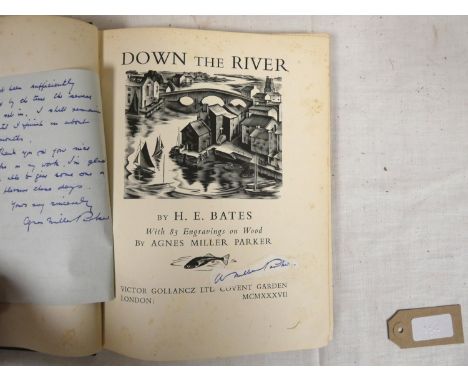 been sufficiently
by the time the
set in. I shall remain
until I finish in about
months.
Thank you for your nice
in my work. I'm glad
able to give some one a
these days.
Yours very sincerely
Agnes Miller Parker
DOWN THE RIVER
BY H. E. BATES
With 83 Engravings on Wood
BY AGNES MILLER PARKER
A Miller Parker.
VICTOR GOLLANCZ LTD COVENT GARDEN
LONDON: MCMXXXVII